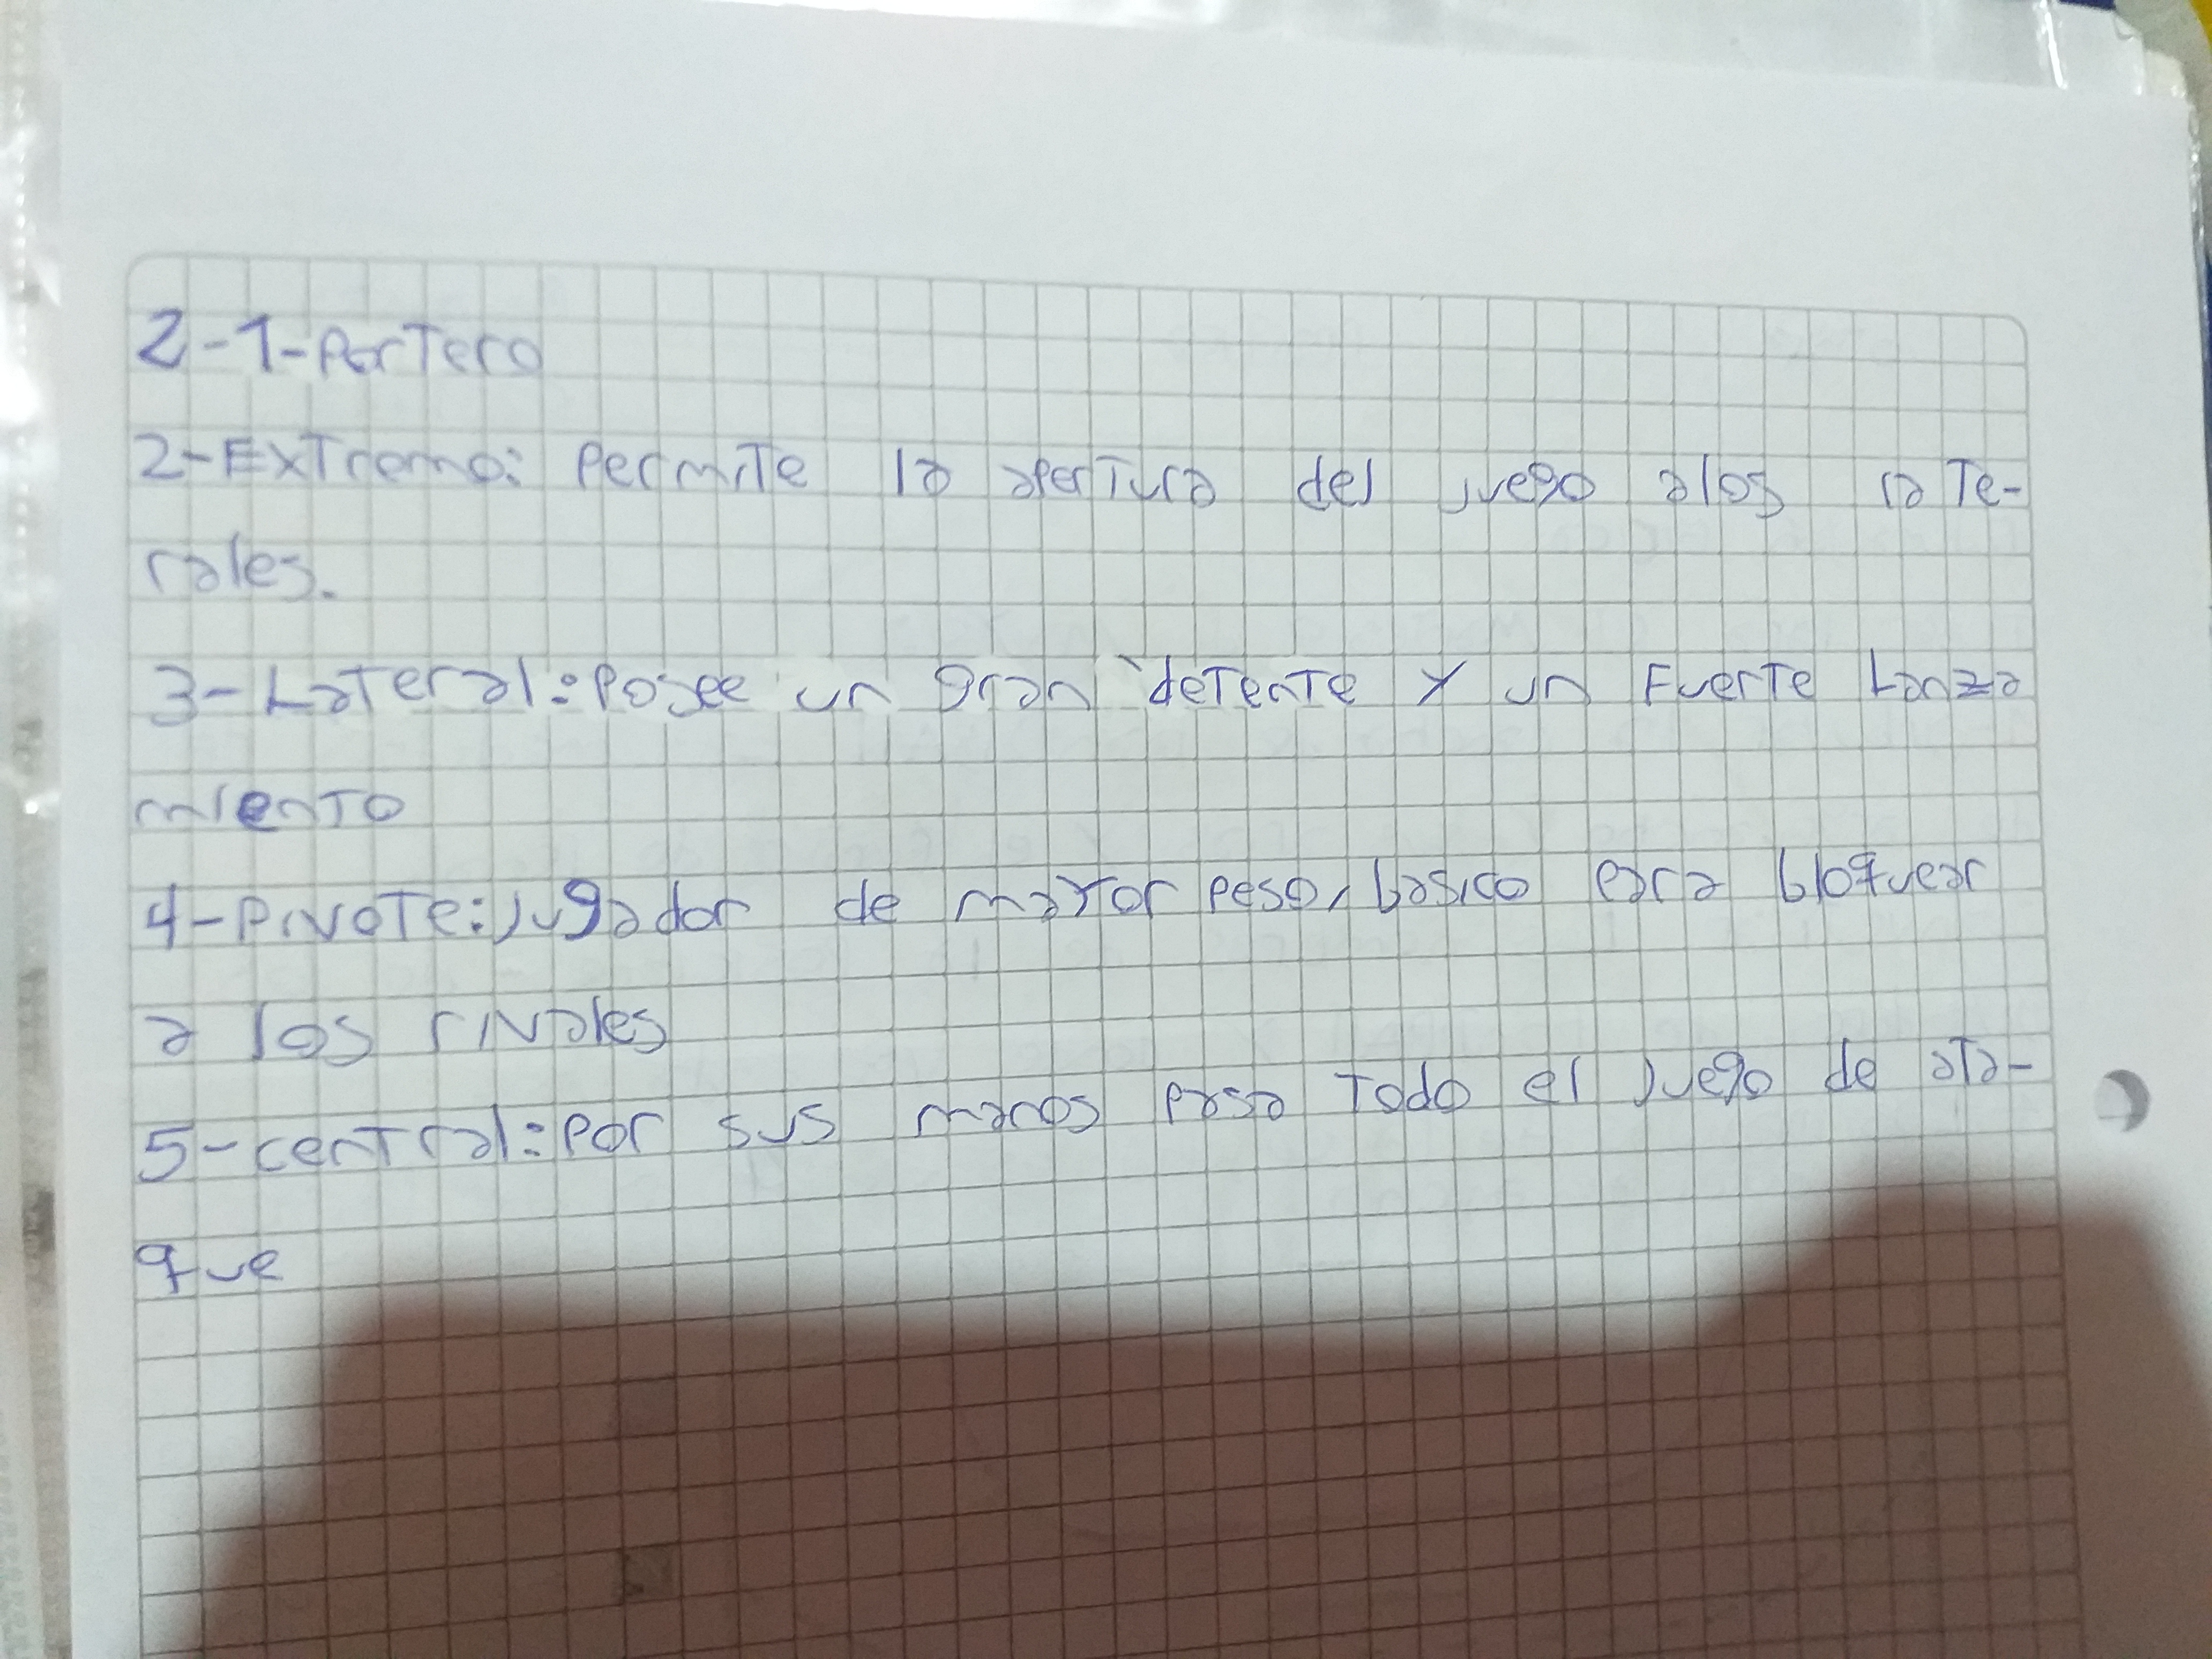 2-1-Portero
2-Extremo: Permite la apertura del juego alos late-
rales.
3-Lateral: Posee un gran detente y un Fuerte Lanza
miento
4-Pivote: jugador de mayor peso, basico para bloquear
a los rivales
5-central: Por sus manos pasa todo el juego de ata-
que